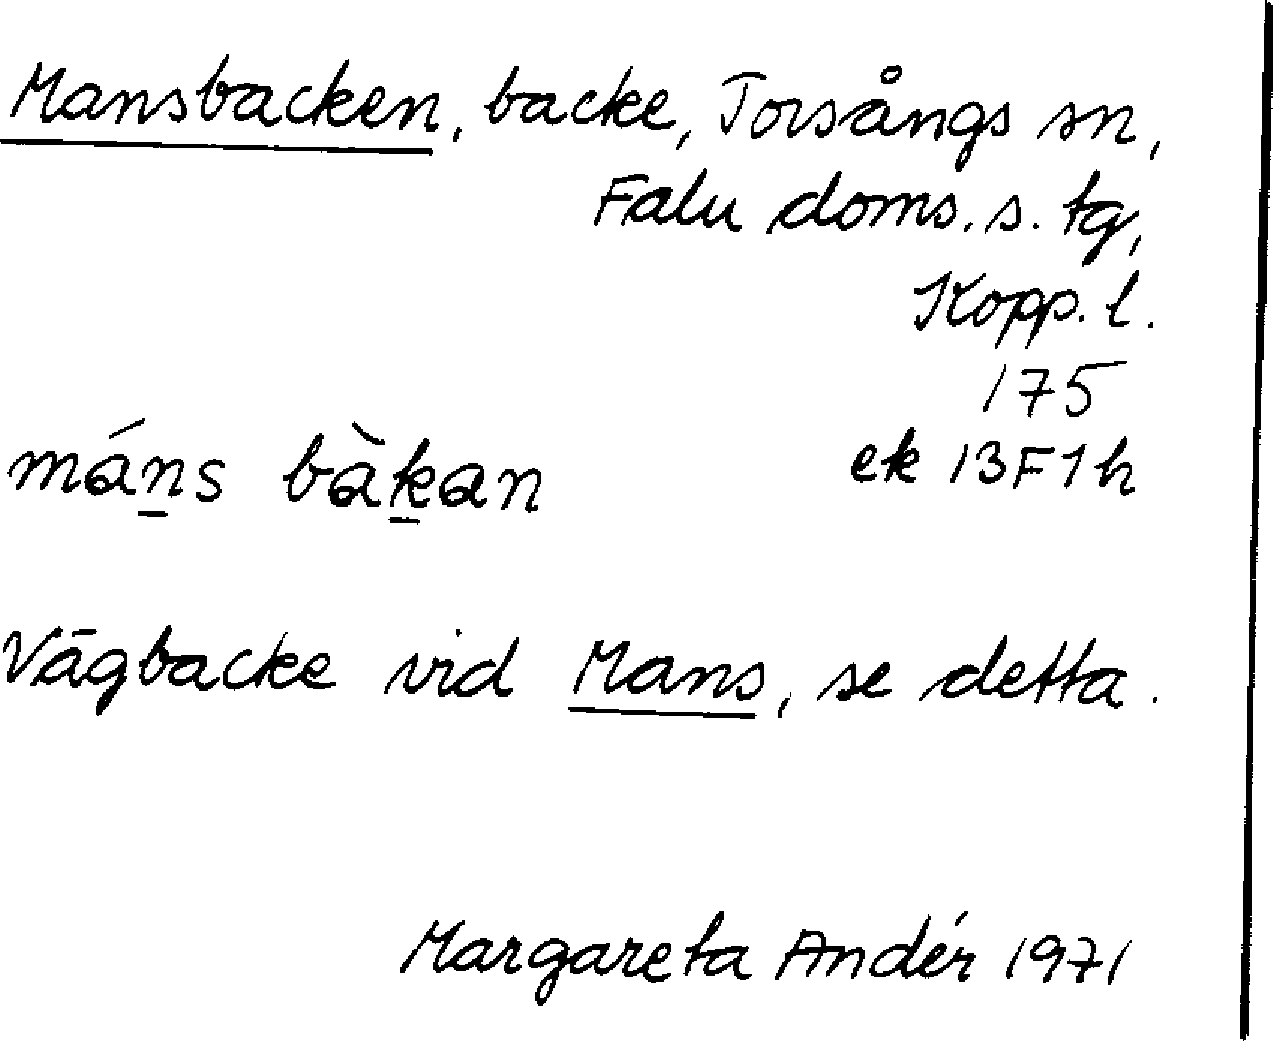 Mansbacken, backe, Torsångs sn,
Falu doms. s. tg,
Kopp. l.
175
máṉs bàḵan
ek 13F1h
Vägbacke vid Mans, se detta.
Margareta Andér 1971